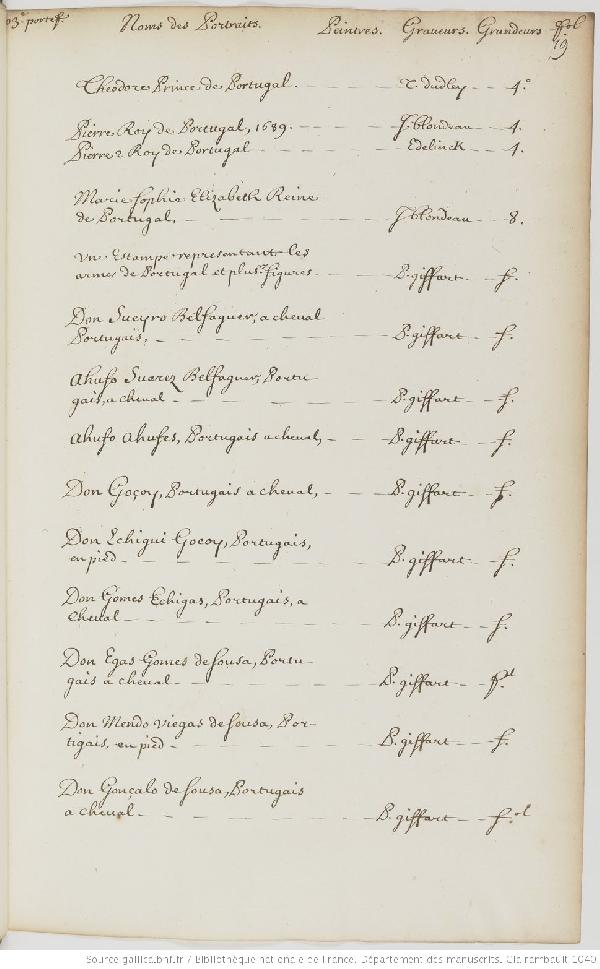 03.e portef. Noms des Portraits. Peintres. Graueurs. Grandeurs ffol
19
Theodore Prince de Portugal. T. dudley 4.o
Pierre Roy de Portugal, 1689. J. blondeau 4.
Pierre 2 Roy de Portugal Edelinck 4.
Marie Sophie Elizabeth Reine
de Portugal, J. blondeau 8.
Vn Estampe representant les
armes de Portugal et plus.rs figures P. giffart f.
Don Sueyro Belfaguer, a cheual
Portugais, P. giffart f.
Ahufo Suarez Belfaguer, Portu-
gais, a cheual P. giffart f.
Ahufo Ahufes, Portugais a cheual, P. giffart f.
Don Goçoy, Portugais a cheual, P. giffart f.
Don Echigui Gocoy, Portugais,
en pied P. giffart f.
Don Gomes Echigas, Portugais, a
cheual P. giffart f.
Don Egas Gomes de Sousa, Portu-
gais a cheual P. giffart f.ol
Don Mendo Viegas de Sousa, Por-
tigais, en pied P. giffart f.
Don Gonçalo de Sousa, Portugais
a cheual P. giffart f.ol
Source gallica.bnf.fr / Bibliothèque nationale de France. Département des manuscrits. Clairambault 1040